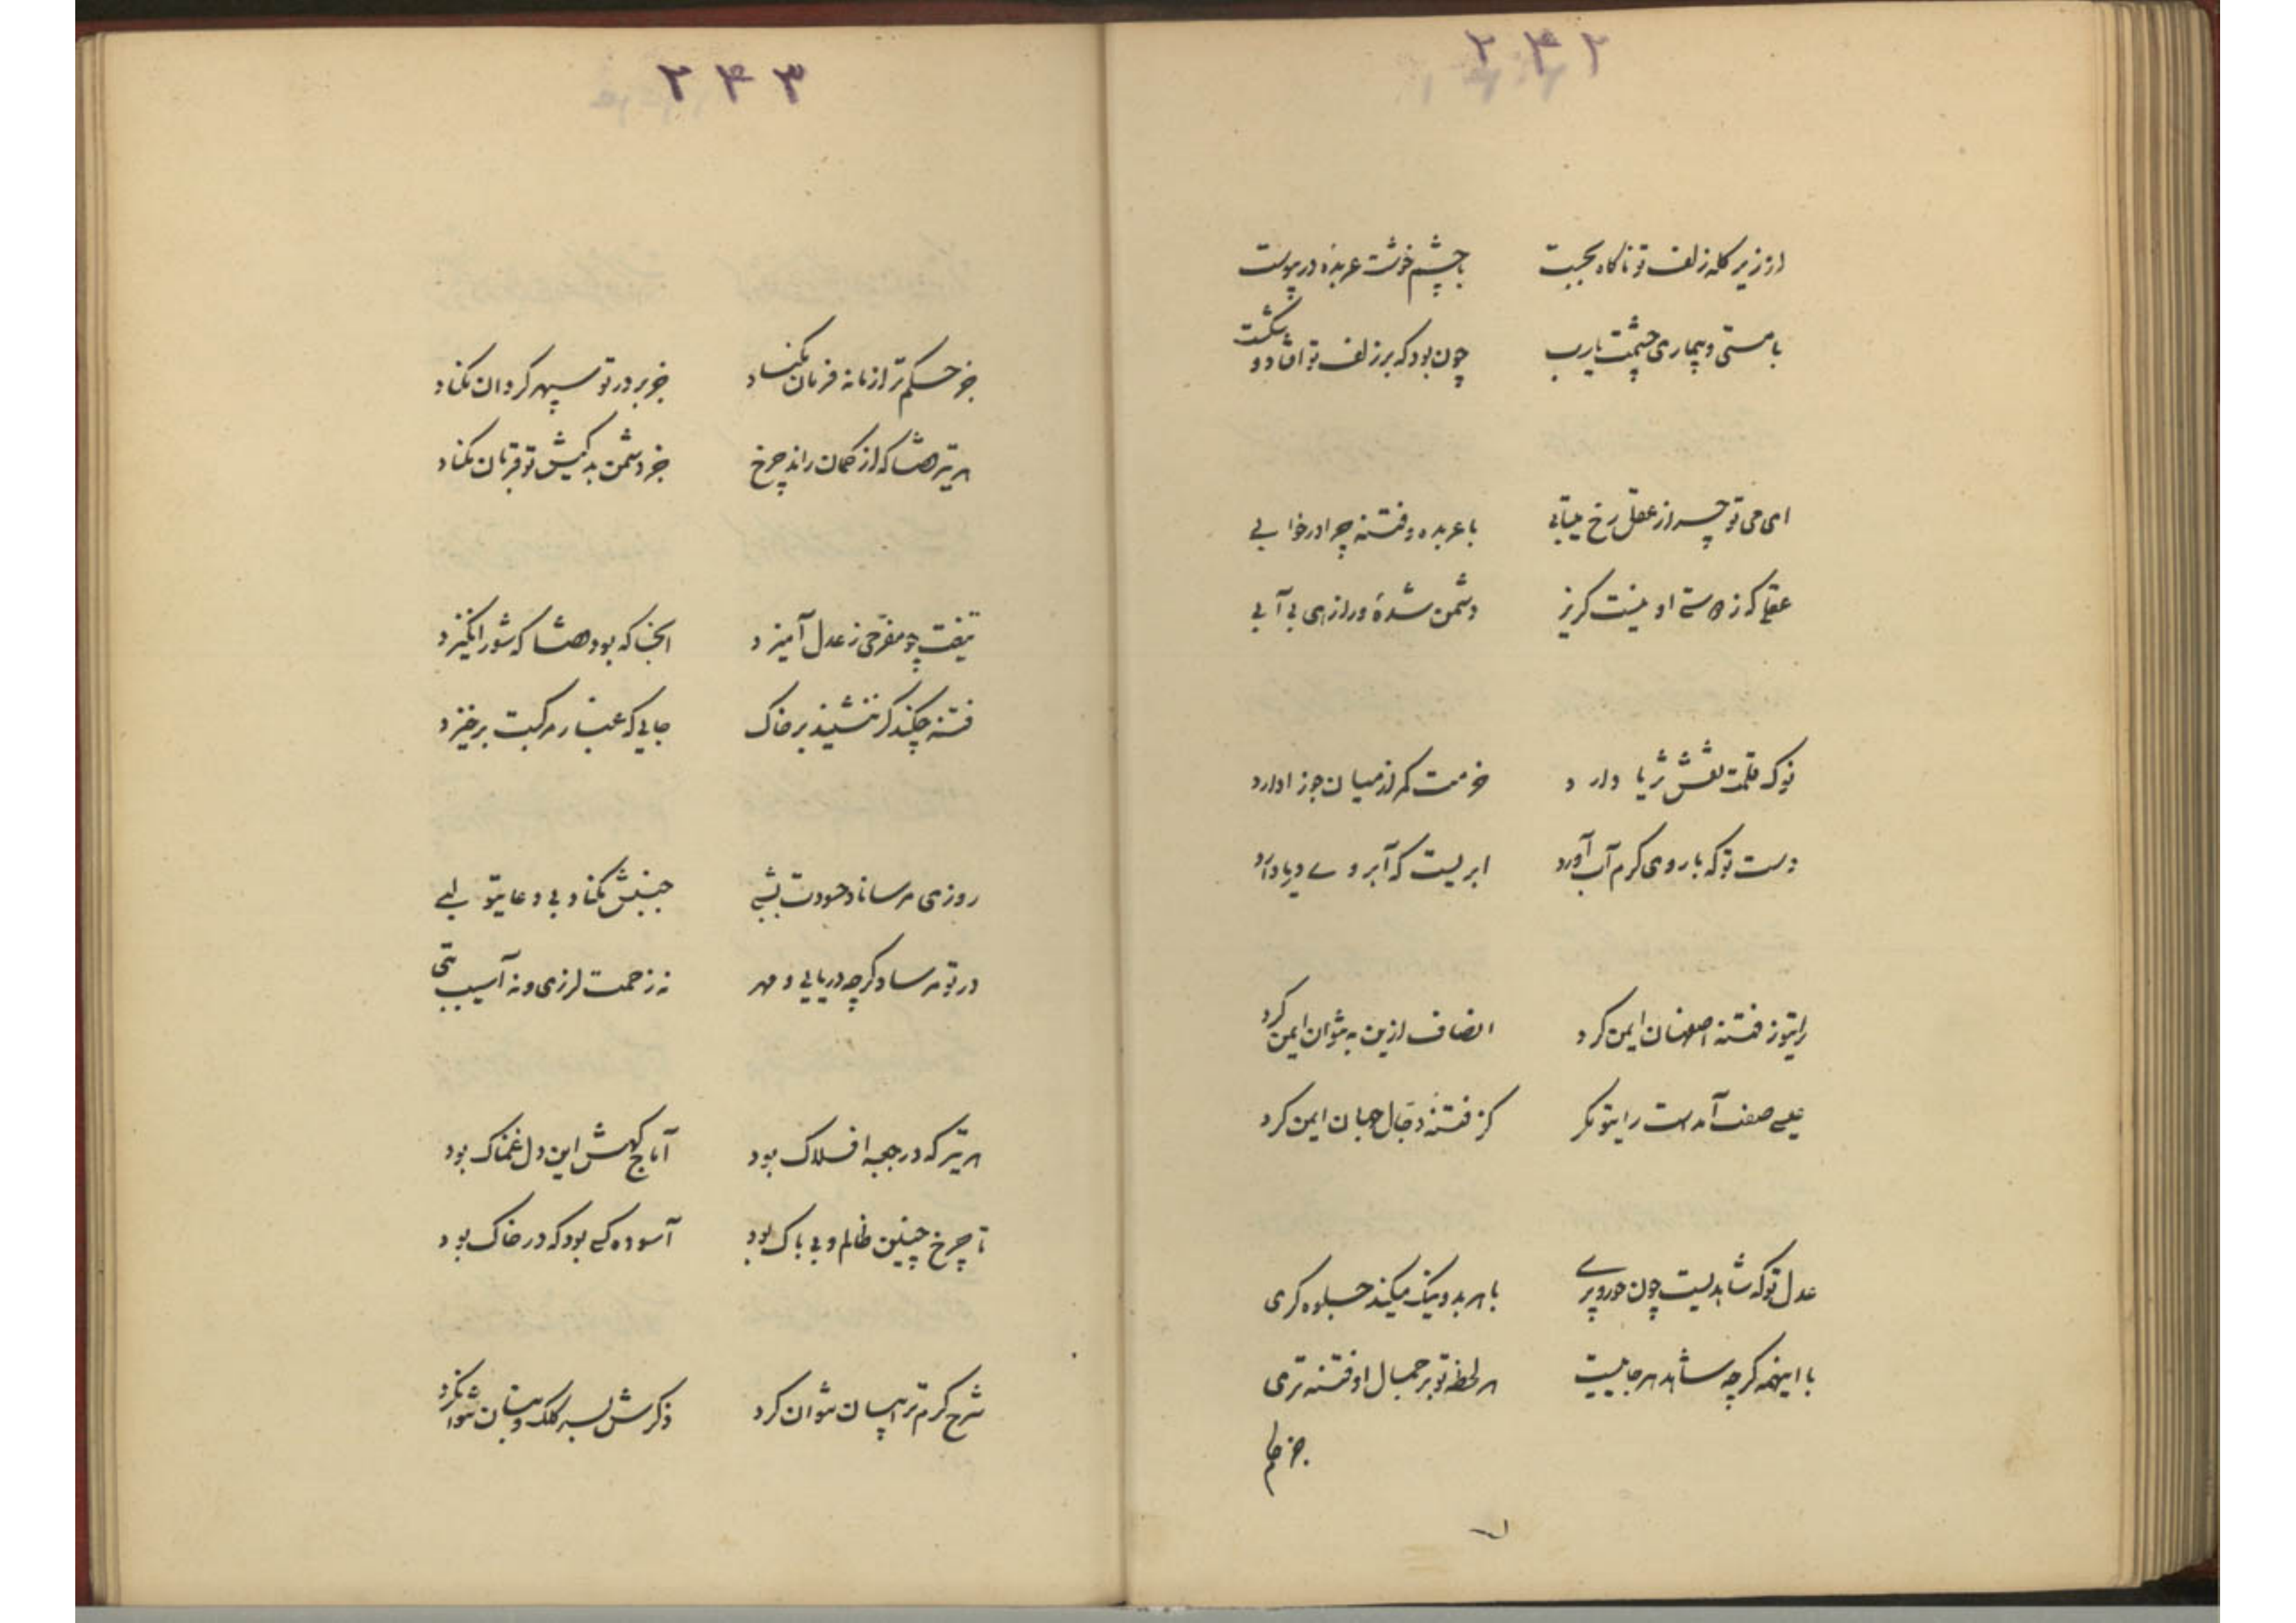 ۲۴۲
از زیر کله زلف تو ناگاه بجست با چشم خوشت عربده در پیوست
با مستی و بیماری چشمت یارب چون بود که بر زلف تو افتاد و شکست
ای می تو چه سر از عقل رخ میتابی با عربده و فتنه چرا در خوابی
عقلی که ز دستی او نیست گریز دشمن شدهٔ ورا زهی بی آبی
نوک قلمت نقش ثریا دارد خرمت کمر از میان جوزا دارد
دست تو که با روی کرم آب آورد ابریست که آبروی دریا دارد
رایتو ز فتنه اصفهان ایمن کرد انصاف ازین به نتوان ایمن کرد
عیسی صفت آمدست رایتو مگر کز فتنهٔ دجال جهان ایمن کرد
عدل تو که شاهدیست چون حور و پری با هر بد و نیک میکند جلوه گری
با اینهمه گرچه شاهد هر جاییست هر لحظه تو بر جمال او فتنه تری
جز حکم
۲۴۳
جز حکم ترا زمانه فرمان مکناد جز بر در تو سپهر گردان مکناد
هر تیر قضا که از کمان راند چرخ جز دشمن بد کیش تو قربان مکناد
تیغت چو مفرحی ز عدل آمیزد آنجا که بود قضا که شور انگیزد
فتنه چکند گر ننشیند بر خاک جایی که غبار مرکبت برخیزد
روزی مرساناد حسودت بشبی جنبش مکناد بی دعایتو لبی
در تو مرساد گرچه دریایی و مهر نه زحمت لرزی و نه آسیب تبی
هر تیر که در جعبه افلاک بود آماج گهش این دل غمناک بود
تا چرخ چنین ظالم و بی باک بود آسوده کسی بود که در خاک بود
شرح کرم ترا بیان نتوان کرد ذکرش بسر کلک و بنان نتوان کرد